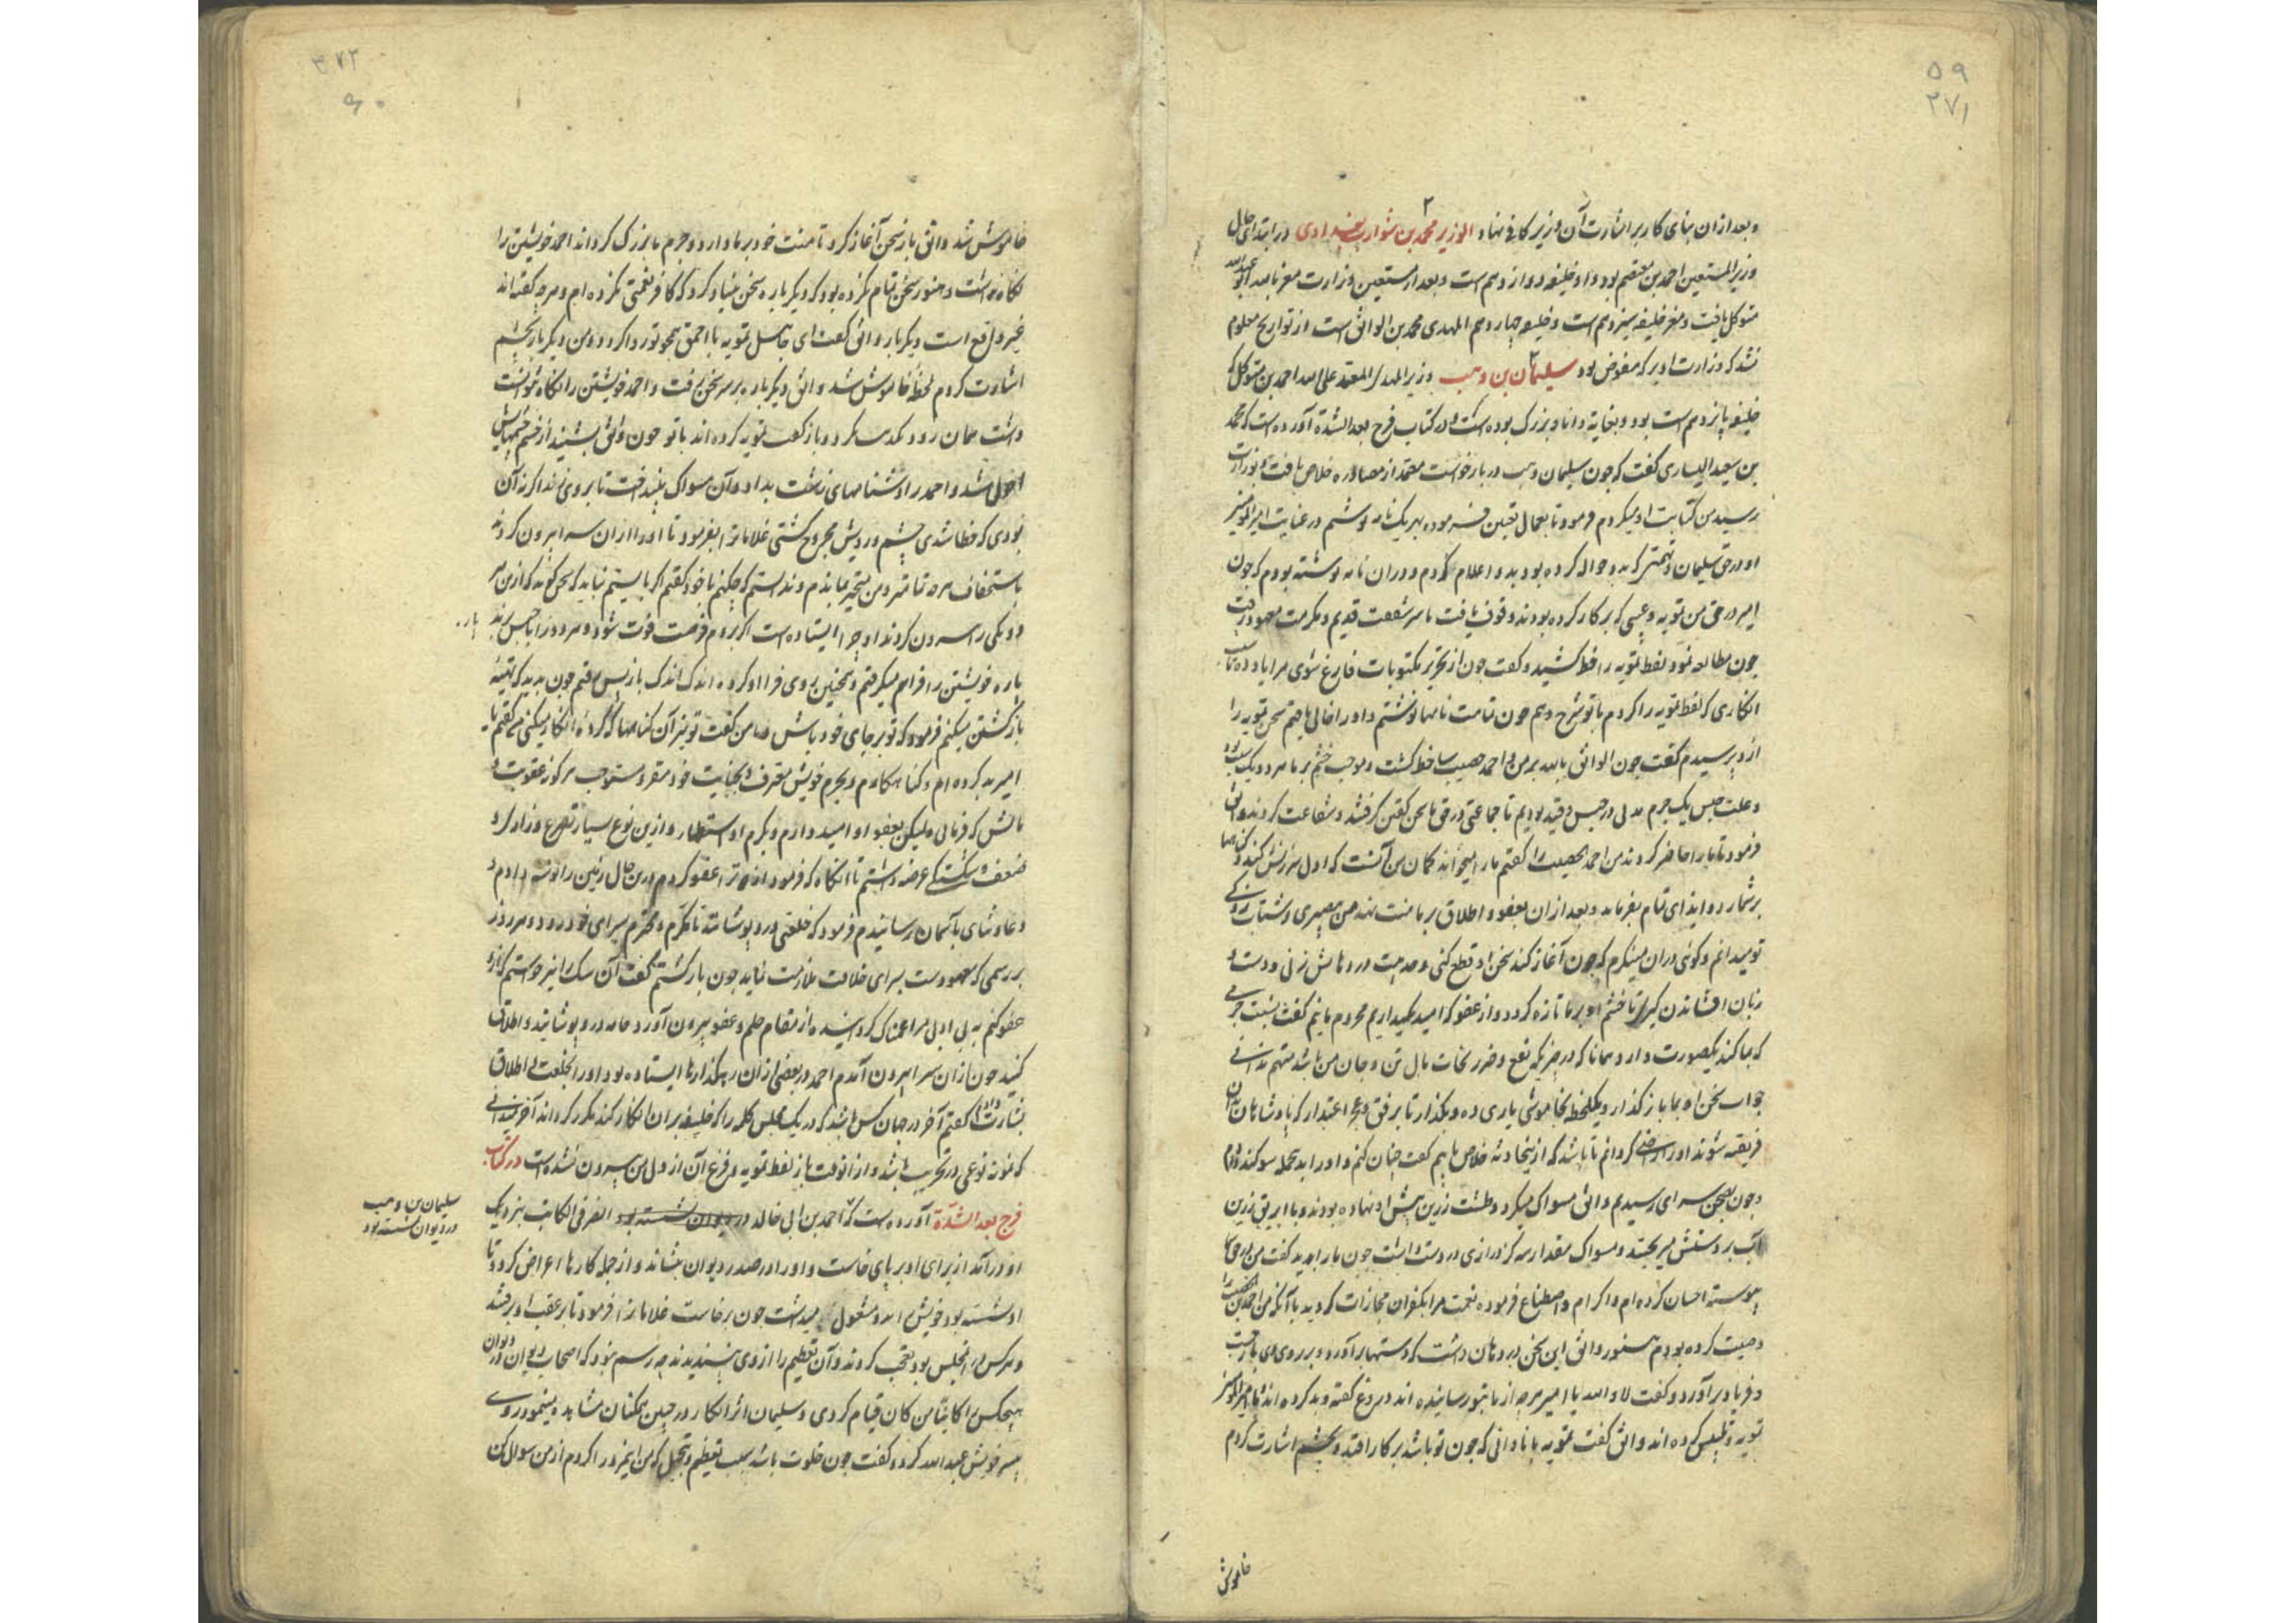 ۵۹
۲۷۱
و بعد ازان بنای کار بر اشارت آن وزیر کافی نهاد الوزیر محمد بن شوارب بغدادی در ابتدای حال
وزیر المستعین احمد بن معتصم بود و او خلیفه دوازدهم است و بعد از مستعین وزارت معتز بالله ابو عبدالله
متوکل یافت و معتز خلیفه سیزدهم است و خلیفه چهاردهم المهتدی محمد بن الواثق است از تواریخ معلوم
نشد که وزارت او بر که مفوض بود سلیمان بن وهب وزیر المهتدی المعتمد علی الله احمد بن متوکل که
خلیفه پانزدهم است بود و بغایة دانا و بزرگ بوده است و در کتاب فرج بعد الشدة آورده است که محمد
بن سعید الیساری گفت که چون سلیمان وهب در بازخواست معتمد از مصادره خلاص یافت و بوزارت
رسید من کتابت او میکردم فرمود تا بعمال تعیین فرموده بهر یک نامه نوشتم در عنایت امیرالمؤمنین
او در حق سلیمان و مهمتر که بدو حواله کرده بود بدو اعلام کردم و دران نامه نوشته بودم که چون
امیر در حق من تمویه و عیبی که بر کار کرده بودند وقوف یافت با سر شفقت قدیم و مکرمت معهود رفت
چون مطالعه نمود لفظ تمویه را خط کشید و گفت چون از تحریر مکتوبات فارغ شوی مرا یاد ده تا سبب
انکاری که لفظ تمویه را کردم با تو شرح دهم چون تمامت نامها نوشتم و او را خالی یافتم سخن تمویه را
ازو پرسیدم گفت چون الواثق بالله بر من و احمد خصیب ساخط گشت و موجب خشم بر ما هر دو یک سبب بود
و علت حبس یک جرم مدتی در حبس و قید بودیم تا جماعتی در حق ما سخن گفتن گرفتند و شفاعت کردند واثق
فرمود تا ما را حاضر کردند من احمد الخصیب را گفتم ما را میخواند گمان من آنست که اول سرزنش کند و گناهها
بر شمارد و ایذای تمام بفرماید و بعد ازان بعفو و اطلاق بر ما منت نهد من بی صبری و شتاب زدگی
تو میدانم و گوئی دران مینگرم که چون آغاز کند سخن او قطع کنی و حدیث در دهانش زنی و دست و
زبان افشاندن گیری تا خشم او بر ما تازه گردد و از عفو که امید میداریم محروم مانیم گفت نسبت جرمی
که بما کند یک صورت دارد و همانا که در چیزیکه نفع و ضرر نجات مال و تن و جان من باشد متهم ندانی
جواب سخن او بما باز گذار و یک لحظه بخاموشی یاری ده و بگذار تا برفق و عجز اعتذار که پادشاهان بدان
فریفته شوند او را راضی گردانم تا باشد که ازین حادثه خلاص یابیم گفت چنان کنم و او را بدین جمله سوگند دادم
و چون بصحن سرای رسیدیم واثق مسواک میکرد و طشت زرین پیش او نهاده بودند و با ابریق زرین
آب بر دستش میریختند و مسواک مقدار سه گز درازی در دست داشت چون ما را بدید گفت من در حق شما
پیوسته احسان کرده ام و اکرام و اصطناع فرموده نعمت مرا بکفران مجازات کردید با آنکه من احمد بن الخصیب را
وصیت کرده بودم هنوز واثق این سخن در دهان داشت که دستها برآورد و بر روی وی باز جست
و فریاد برآورد و گفت لا و الله یا امیر هرچه از ما بتو رسانیده اند دروغ گفته و بد کرده اند یا امیرالمؤمنین
تمویه و تلبیس کرده اند واثق گفت تمویه با نادانی که چون تو باشد بر کار افتد و بچشم اشارت کردم
خاموش
۳۷۲
۶۰
خاموش شد واثق باز سخن آغاز کرد تا منت خود بر ما دارد و جرم ما بزرگ گرداند احمد خویشتن را
نگاه نداشت و هنوز سخن تمام نکرده بود که دیگر باره سخن بنیاد کرد که کافر نعمتی نکرده ام و هرچه گفته اند
غیر واقع است دیگر بار واثق گفت ای جاهل تمویه با احمق همچو تو روا گردد و من دیگر بار بچشم
اشارت کردم لحظهٔ خاموش شد واثق دیگر باره بر سر سخن رفت و احمد خویشتن را نگاه نتوانست
داشت همان زود و باز گفت تمویه کرده اند با تو چون واثق بشنید از خشم چشمهایش
احول شد و احمد را دشنامهای زشت بداد و آن مسواک بینداخت تا بر وی زند اگر نه آن
بودی که خطا شدی چشم و رویش مجروح گشتی غلامان را بفرمود تا او را ازان سرا بیرون کردند
باستخفاف هرچه تمامتر و من متحیر بماندم و ندانستم که چکنم با خود گفتم اگر بایستم نباید که سخن گوید که ازین هر
دو یکی را بیرون کردند او چرا ایستاده است اگر بروم فرصت فوت شود و هر دو را با حبس برند
پاره خویشتن را فراهم میگرفتم و همچنین روی فرا او کرده اندک اندک باز پس میرفتم چون بدید که تهیئه
بازگشتن میکنم فرمود که تو بر جای خود باش و با من گفت تو نیز آن گناهها که کردهٔ انکار میکنی گفتم یا
امیر بد کرده ام و گناهکارم و بجرم خویش معترف و بجنایت خود مقر و مستوجب هر گونه عقوبت و
مالش که فرمائی ولیکن بعفو او امید وارم و بکرم او مستظهر و ازین نوع بسیار تضرع و زاری و
ضعف و شکستگی عرضه داشتم تا آنگاه که فرمود از تو عفو کردم من در حال زمین را بوسه دادم و
دعا و ثنای بآسمان رسانیدم فرمود که خلعتی درو پوشانند تا مکرم و محترم بسرای خود رود و هر روز
بر رسمی که معهود است بسرای خلافت ملازمت نماید چون بازگشتم گفت آن سگ را نیز خواستم که ازو
عفو کنم به بی ادبی مرا غمناک گردانید و از مقام حلم و عفو بیرون آورد جامه درو پوشانید و اطلاق
کنید چون ازان سرا بیرون آمدم احمد در بعضی ازان رهگذارها ایستاده بود او را بخلعت و اطلاق
بشارت دادم گفتم آخر در جهان کس باشد که در یک مجلس کلمه را که خلیفه بران انکار کند مکرر گرداند آخر نمیدانی
که تمویه نوعی در تخریب باشد و ازانوقت باز لفظ تمویه و فزع آن از دل من بیرون نشده است در کتاب
فرج بعد الشدة آورده است که احمد بن ابی خالد در دیوان نشسته بود الصرفی الکاتب بنزدیک
سلیمان بن وهب
در دیوان نشسته بود
او در آمد از برای او بر پای خاست و او را در صدر دیوان بنشاند و از جمله کارها اعراض کرد و تا
او نشسته بود خویش را بدو مشغول میداشت چون برخاست غلامان را فرمود تا بر عقب او برفتند
و هر کس در آن مجلس بود تعجب کردند و آن تعظیم را از وی پسندیدند چه رسم نبود که اصحاب دیوان در دیوان
هیچکس را کاینا من کان قیام کردی و سلیمان اثر انکار در جبین همگنان مشاهده مینمود روی
پسر خویش عبد الله کرد و گفت چون خلوت باشد سبب تعظیم و تبجیل که من این مرد را کردم از من سوال کن